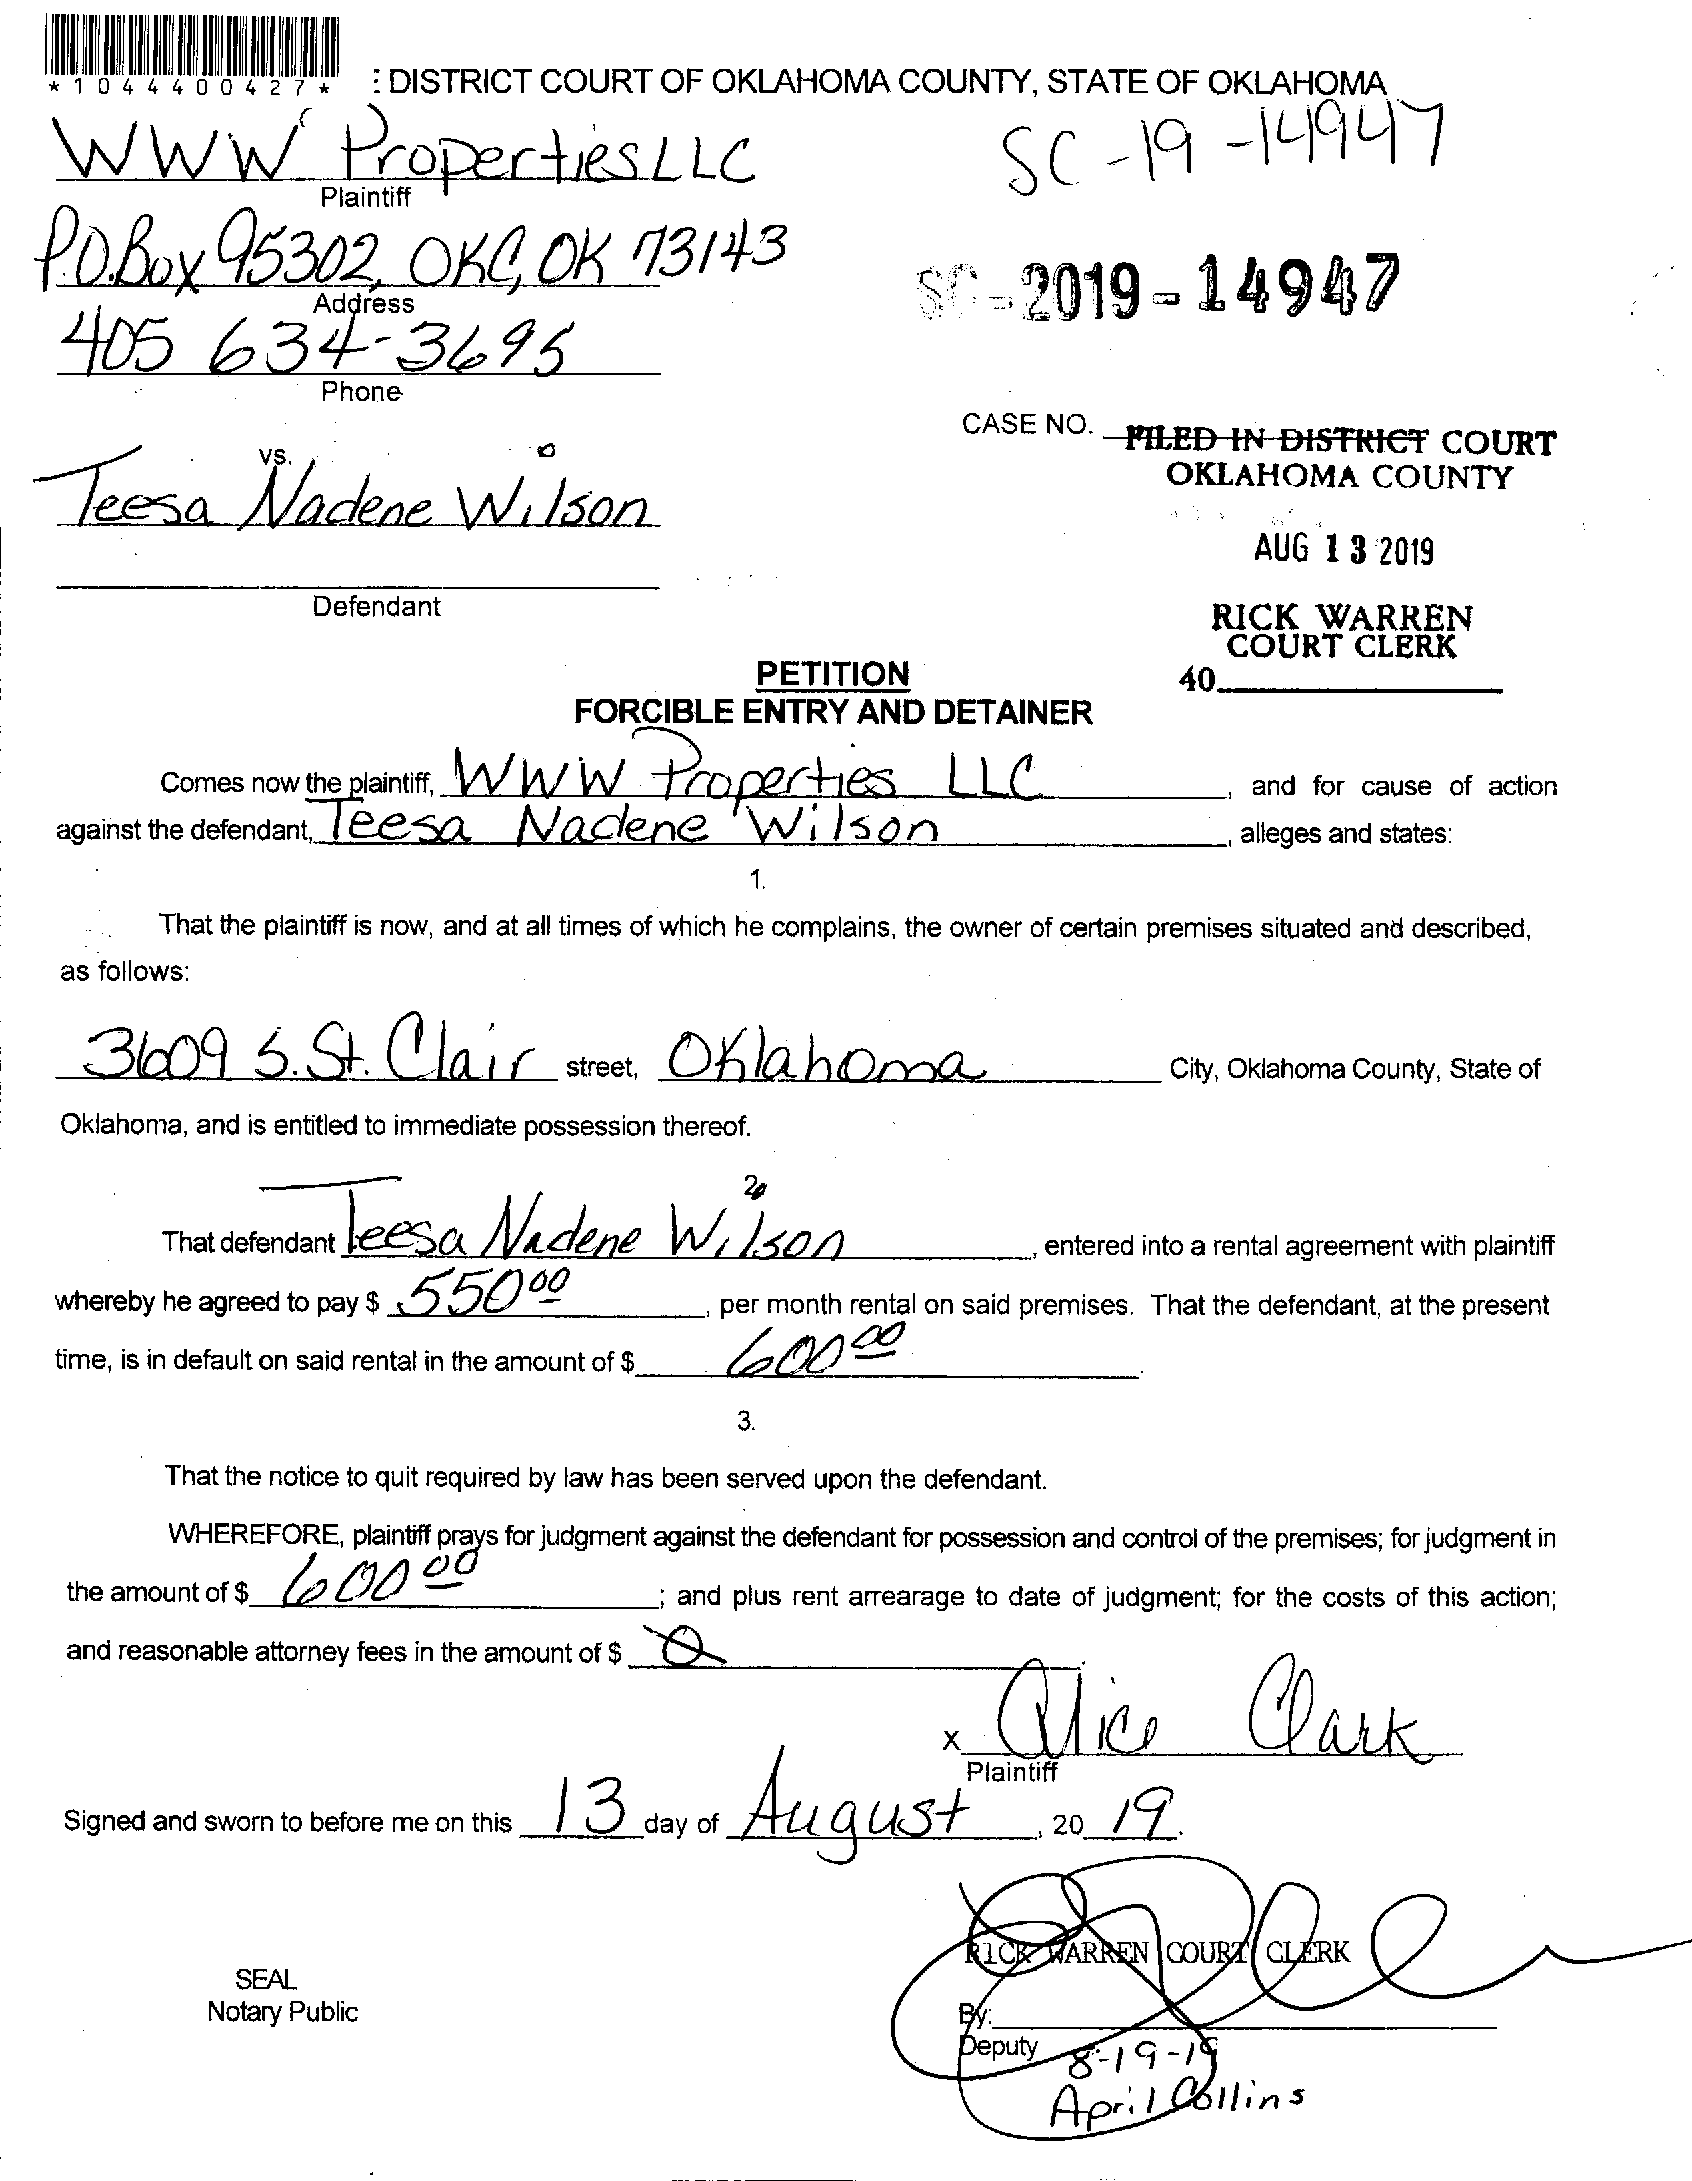 *1044400427*
: DISTRICT COURT OF OKLAHOMA COUNTY, STATE OF OKLAHOMA
WWW Properties LLC
SC-19-14947
Plaintiff
P.O. Box 95302, OKC, OK 73143
SC-2019-14947
Address
405 634-3695
Phone
CASE NO.
FILED IN DISTRICT COURT
OKLAHOMA COUNTY
vs.
Teesa Nadene Wilson
AUG 13 2019
Defendant
RICK WARREN
COURT CLERK
40
PETITION
FORCIBLE ENTRY AND DETAINER
Comes now the plaintiff, WWW Properties LLC, and for cause of action
against the defendant, Teesa Nadene Wilson, alleges and states:
1.
That the plaintiff is now, and at all times of which he complains, the owner of certain premises situated and described,
as follows:
3609 S. St. Clair street, Oklahoma City, Oklahoma County, State of
Oklahoma, and is entitled to immediate possession thereof.
2.
That defendant Teesa Nadene Wilson, entered into a rental agreement with plaintiff
whereby he agreed to pay $ 550 00, per month rental on said premises. That the defendant, at the present
time, is in default on said rental in the amount of $ 600 00
3.
That the notice to quit required by law has been served upon the defendant.
WHEREFORE, plaintiff prays for judgment against the defendant for possession and control of the premises; for judgment in
the amount of $ 600 00; and plus rent arrearage to date of judgment; for the costs of this action;
and reasonable attorney fees in the amount of $ 0
x Alice Clark
Plaintiff
Signed and sworn to before me on this 13 day of August, 20 19.
RICK WARREN COURT CLERK
SEAL
Notary Public
By:
Deputy
8-19-19
April Collins